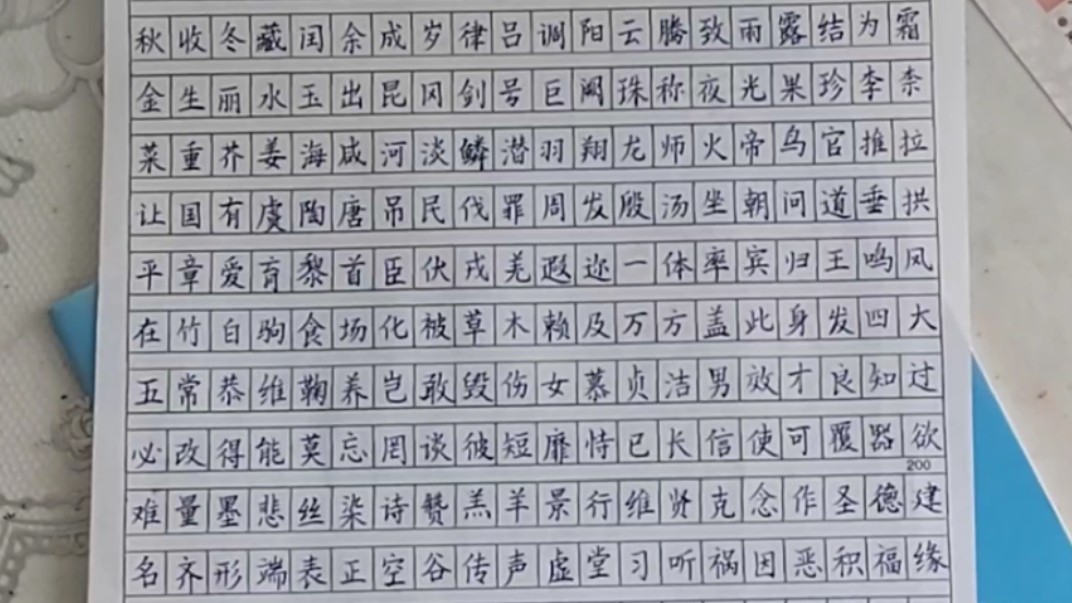 秋收冬藏闰余成岁律吕调阳云腾致雨露结为霜
金生丽水玉出昆冈剑号巨阙珠称夜光果珍李柰
菜重芥姜海咸河淡鳞潜羽翔龙师火帝鸟官推拉
让国有虞陶唐吊民伐罪周发殷汤坐朝问道垂拱
平章爱育黎首臣伏戎羌遐迩一体率宾归王鸣凤
在竹白驹食场化被草木赖及万方盖此身发四大
五常恭维鞠养岂敢毁伤女慕贞洁男效才良知过
必改得能莫忘罔谈彼短靡恃已长信使可覆器欲
200
难量墨悲丝染诗赞羔羊景行维贤克念作圣德建
名齐形端表正空谷传声虚堂习听祸因恶积福缘